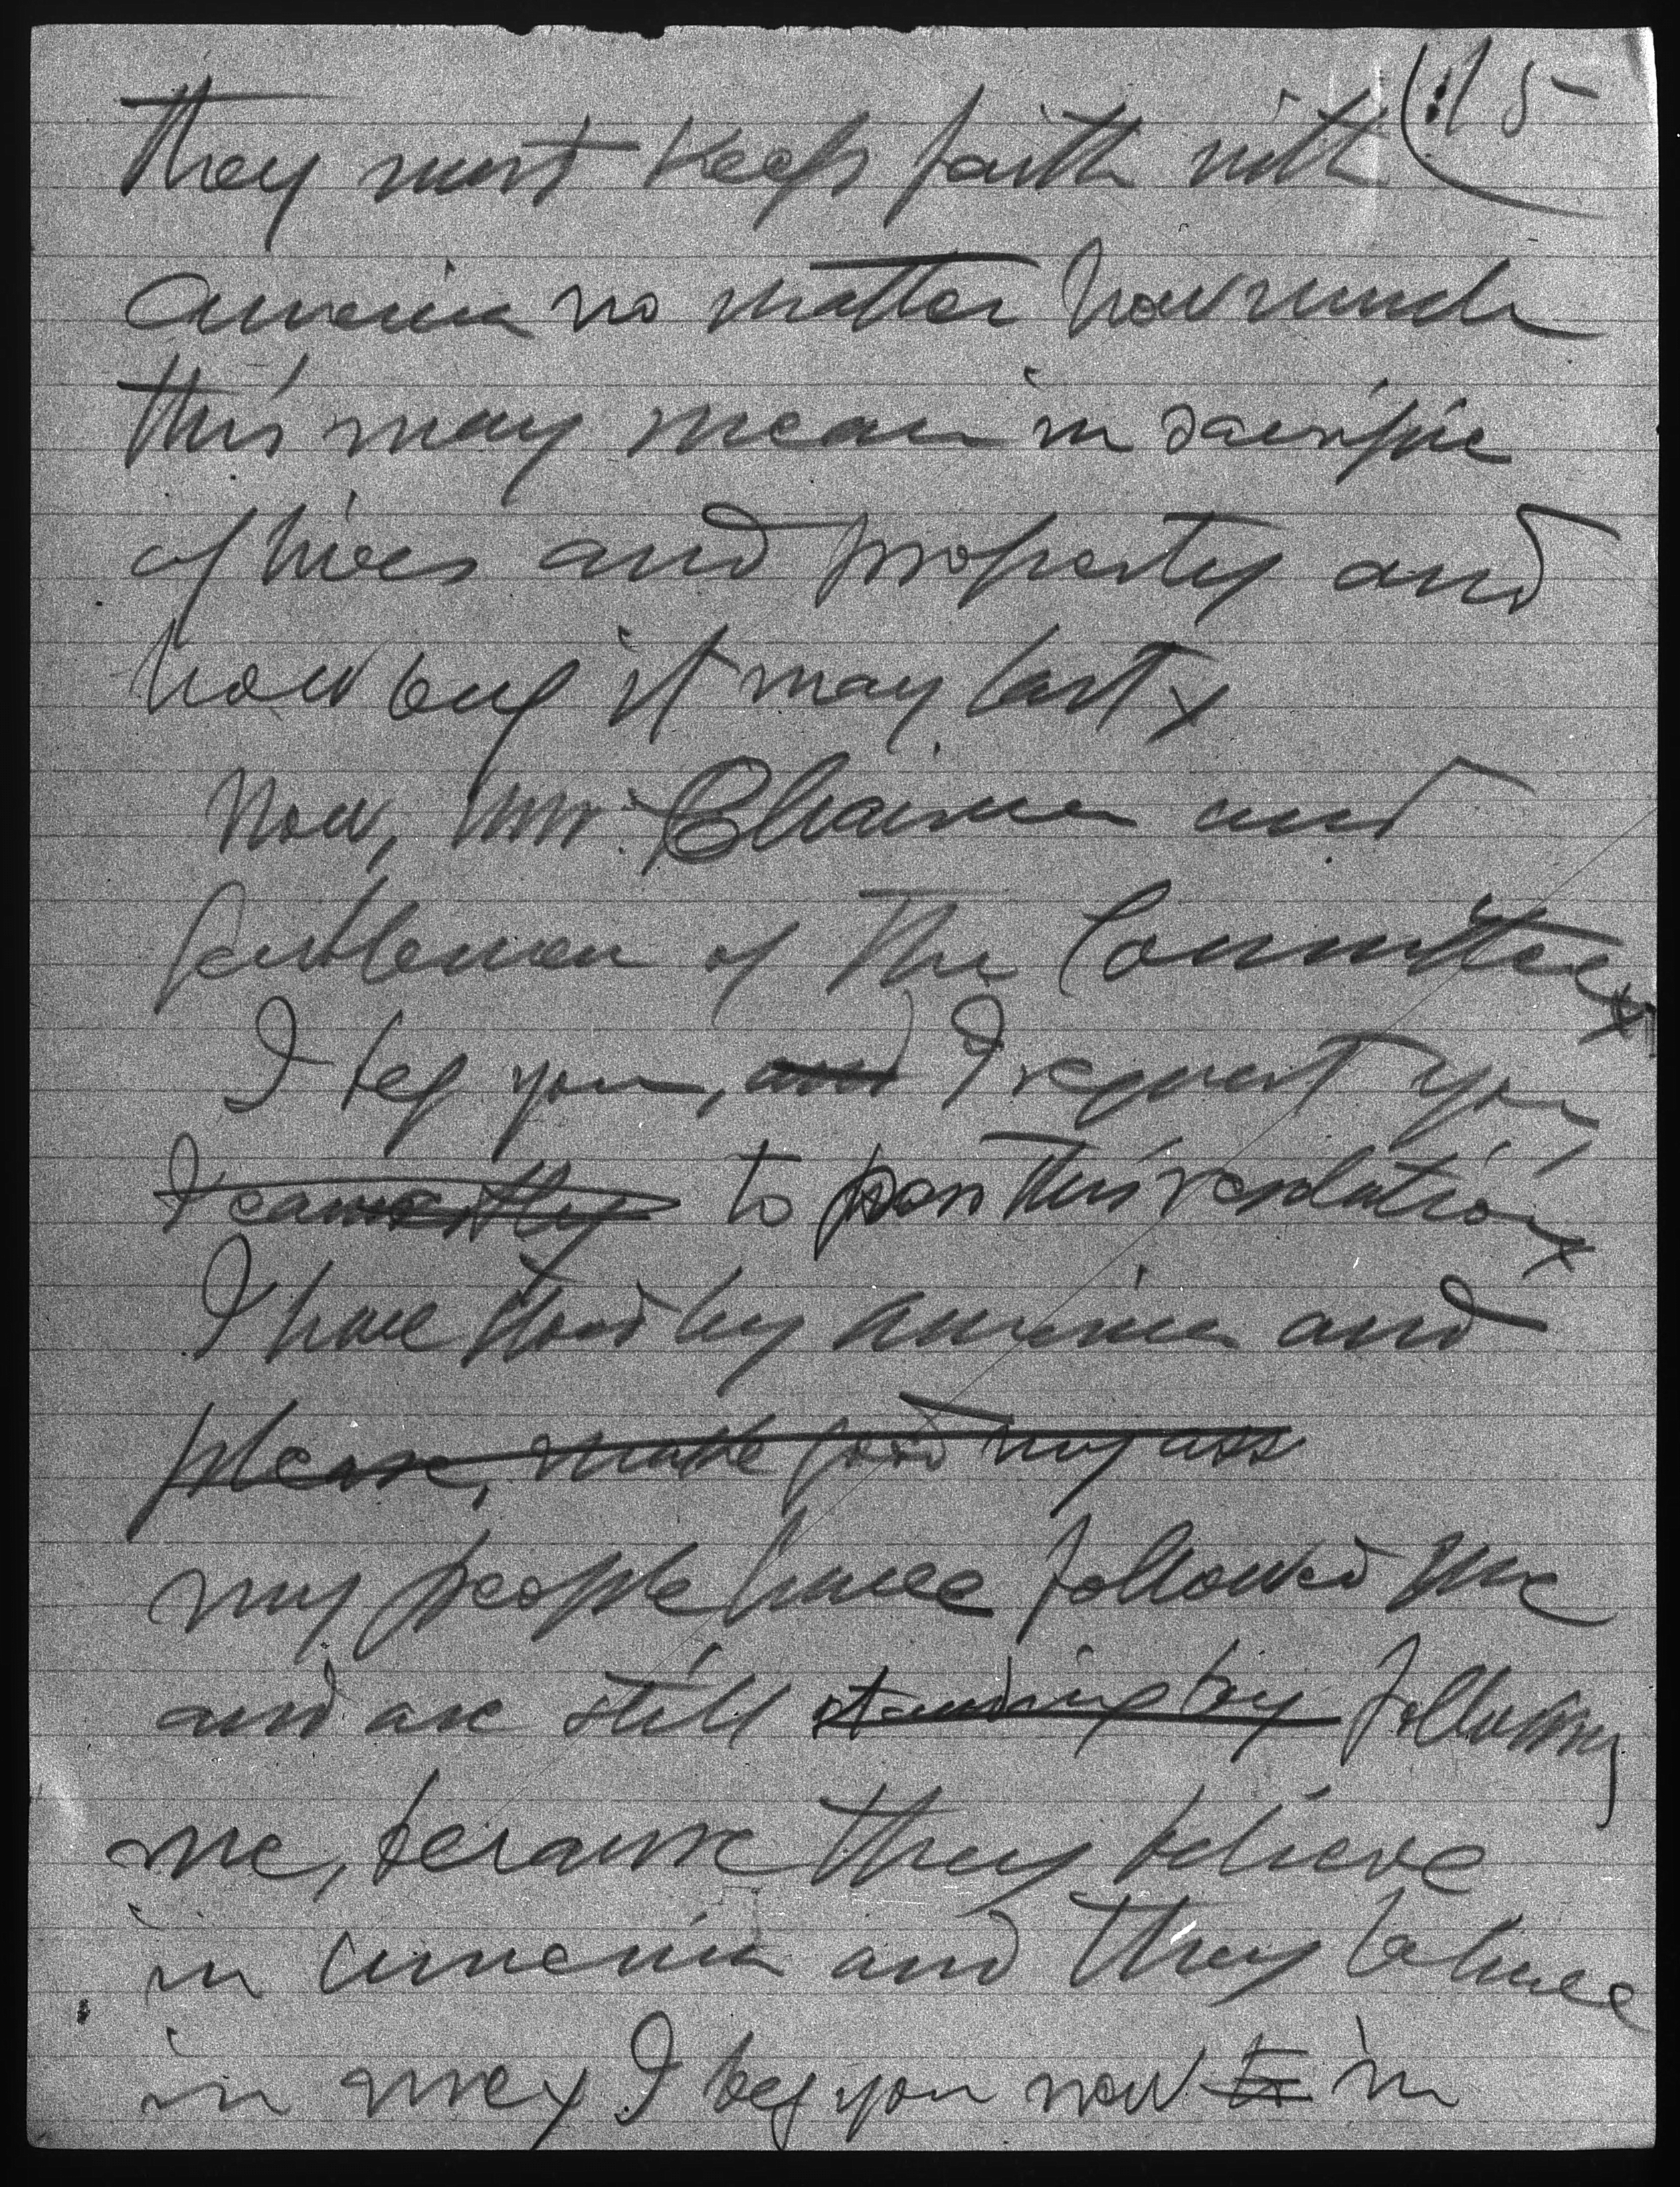 15
They must keep faith with
America no matter how much
this may mean in sacrifice
of lives and property and
how long it may last x
Now, Mr. Chairman and
Gentlemen of the Committee x
I beg you, and I request you,
I earnestly to pass this resolution x
I have stood by America and
please, make good my ass
my people have followed me
and are still standing by following
me, because they believe
in America and they believe
in me x I beg you now to in